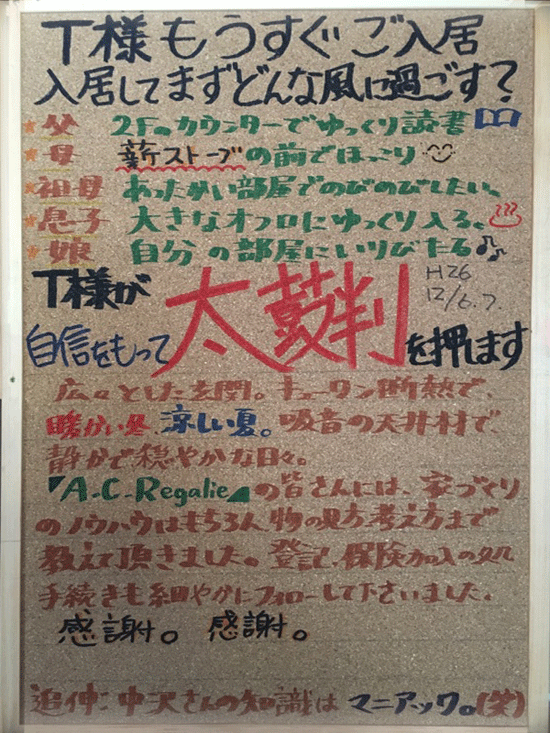 T様もうすぐご入居
入居してまずどんな風に過ごす?
★父 2Fのカウンターでゆっくり読書
★母 薪ストーブの前でほっこり
★祖母 あったかい部屋でのびのびしたい。
★息子 大きなオフロにゆっくり入る、
★娘 自分の部屋にいりびたる
H26
12/6.7.
T様が
自信をもって太鼓判を押します
広々とした玄関。キューワン断熱で、
暖かい冬、涼しい夏。吸音の天井材で、
静かで穏やかな日々。
「A.C.Regalie」の皆さんには、家づくり
のノウハウはもちろん物の見方考え方まで
教えて頂きました。登記、保険加入の処
手続きも細やかにフォローして下さいました、
感謝。 感謝。
追伸:中沢さんの知識はマニアック。(笑)